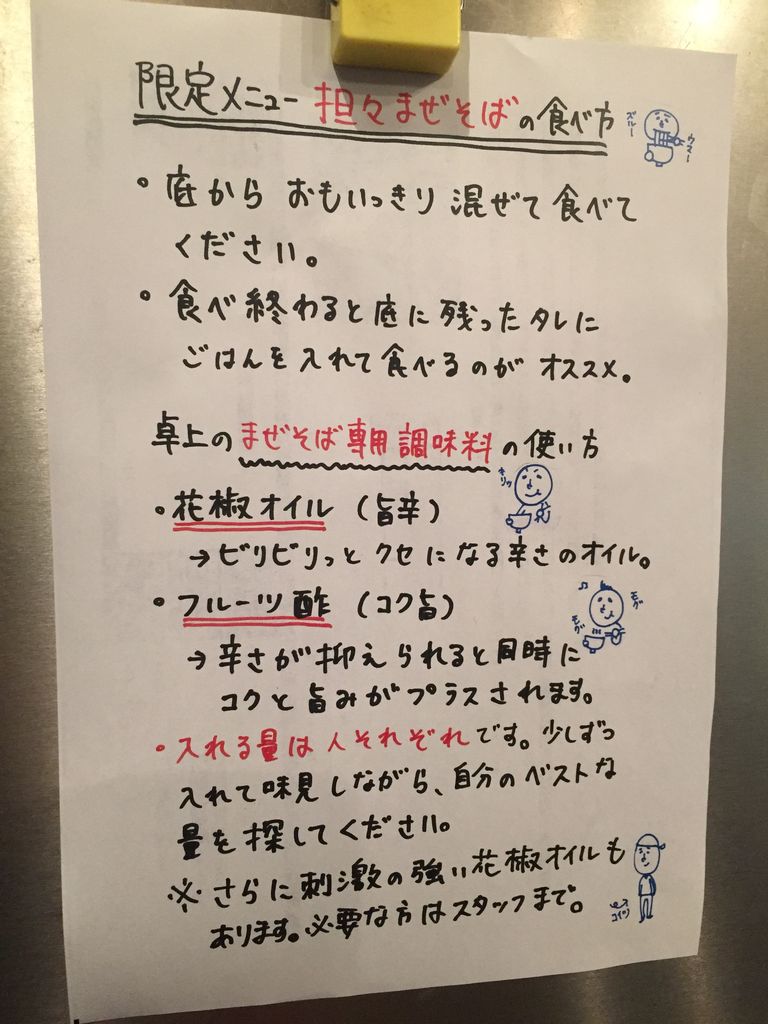 限定メニュー 担々まぜそばの食べ方
ズルー
ウマー
・底から おもいっきり 混ぜて 食べて
ください。
・食べ終わると底に残ったタレに
ごはんを入れて食べるのが オススメ。
卓上のまぜそば専用調味料の使い方
・花椒オイル (旨辛)
→ビリビリっと クセになる辛さのオイル。
・フルーツ酢 (コク旨)
→辛さが抑えられると同時に
コクと旨みがプラスされます。
・入れる量は人それぞれです。少しずつ
入れて味見しながら、自分のベストな
量を探してください。
※さらに刺激の強い花椒オイルも
あります。必要な方はスタッフまで。